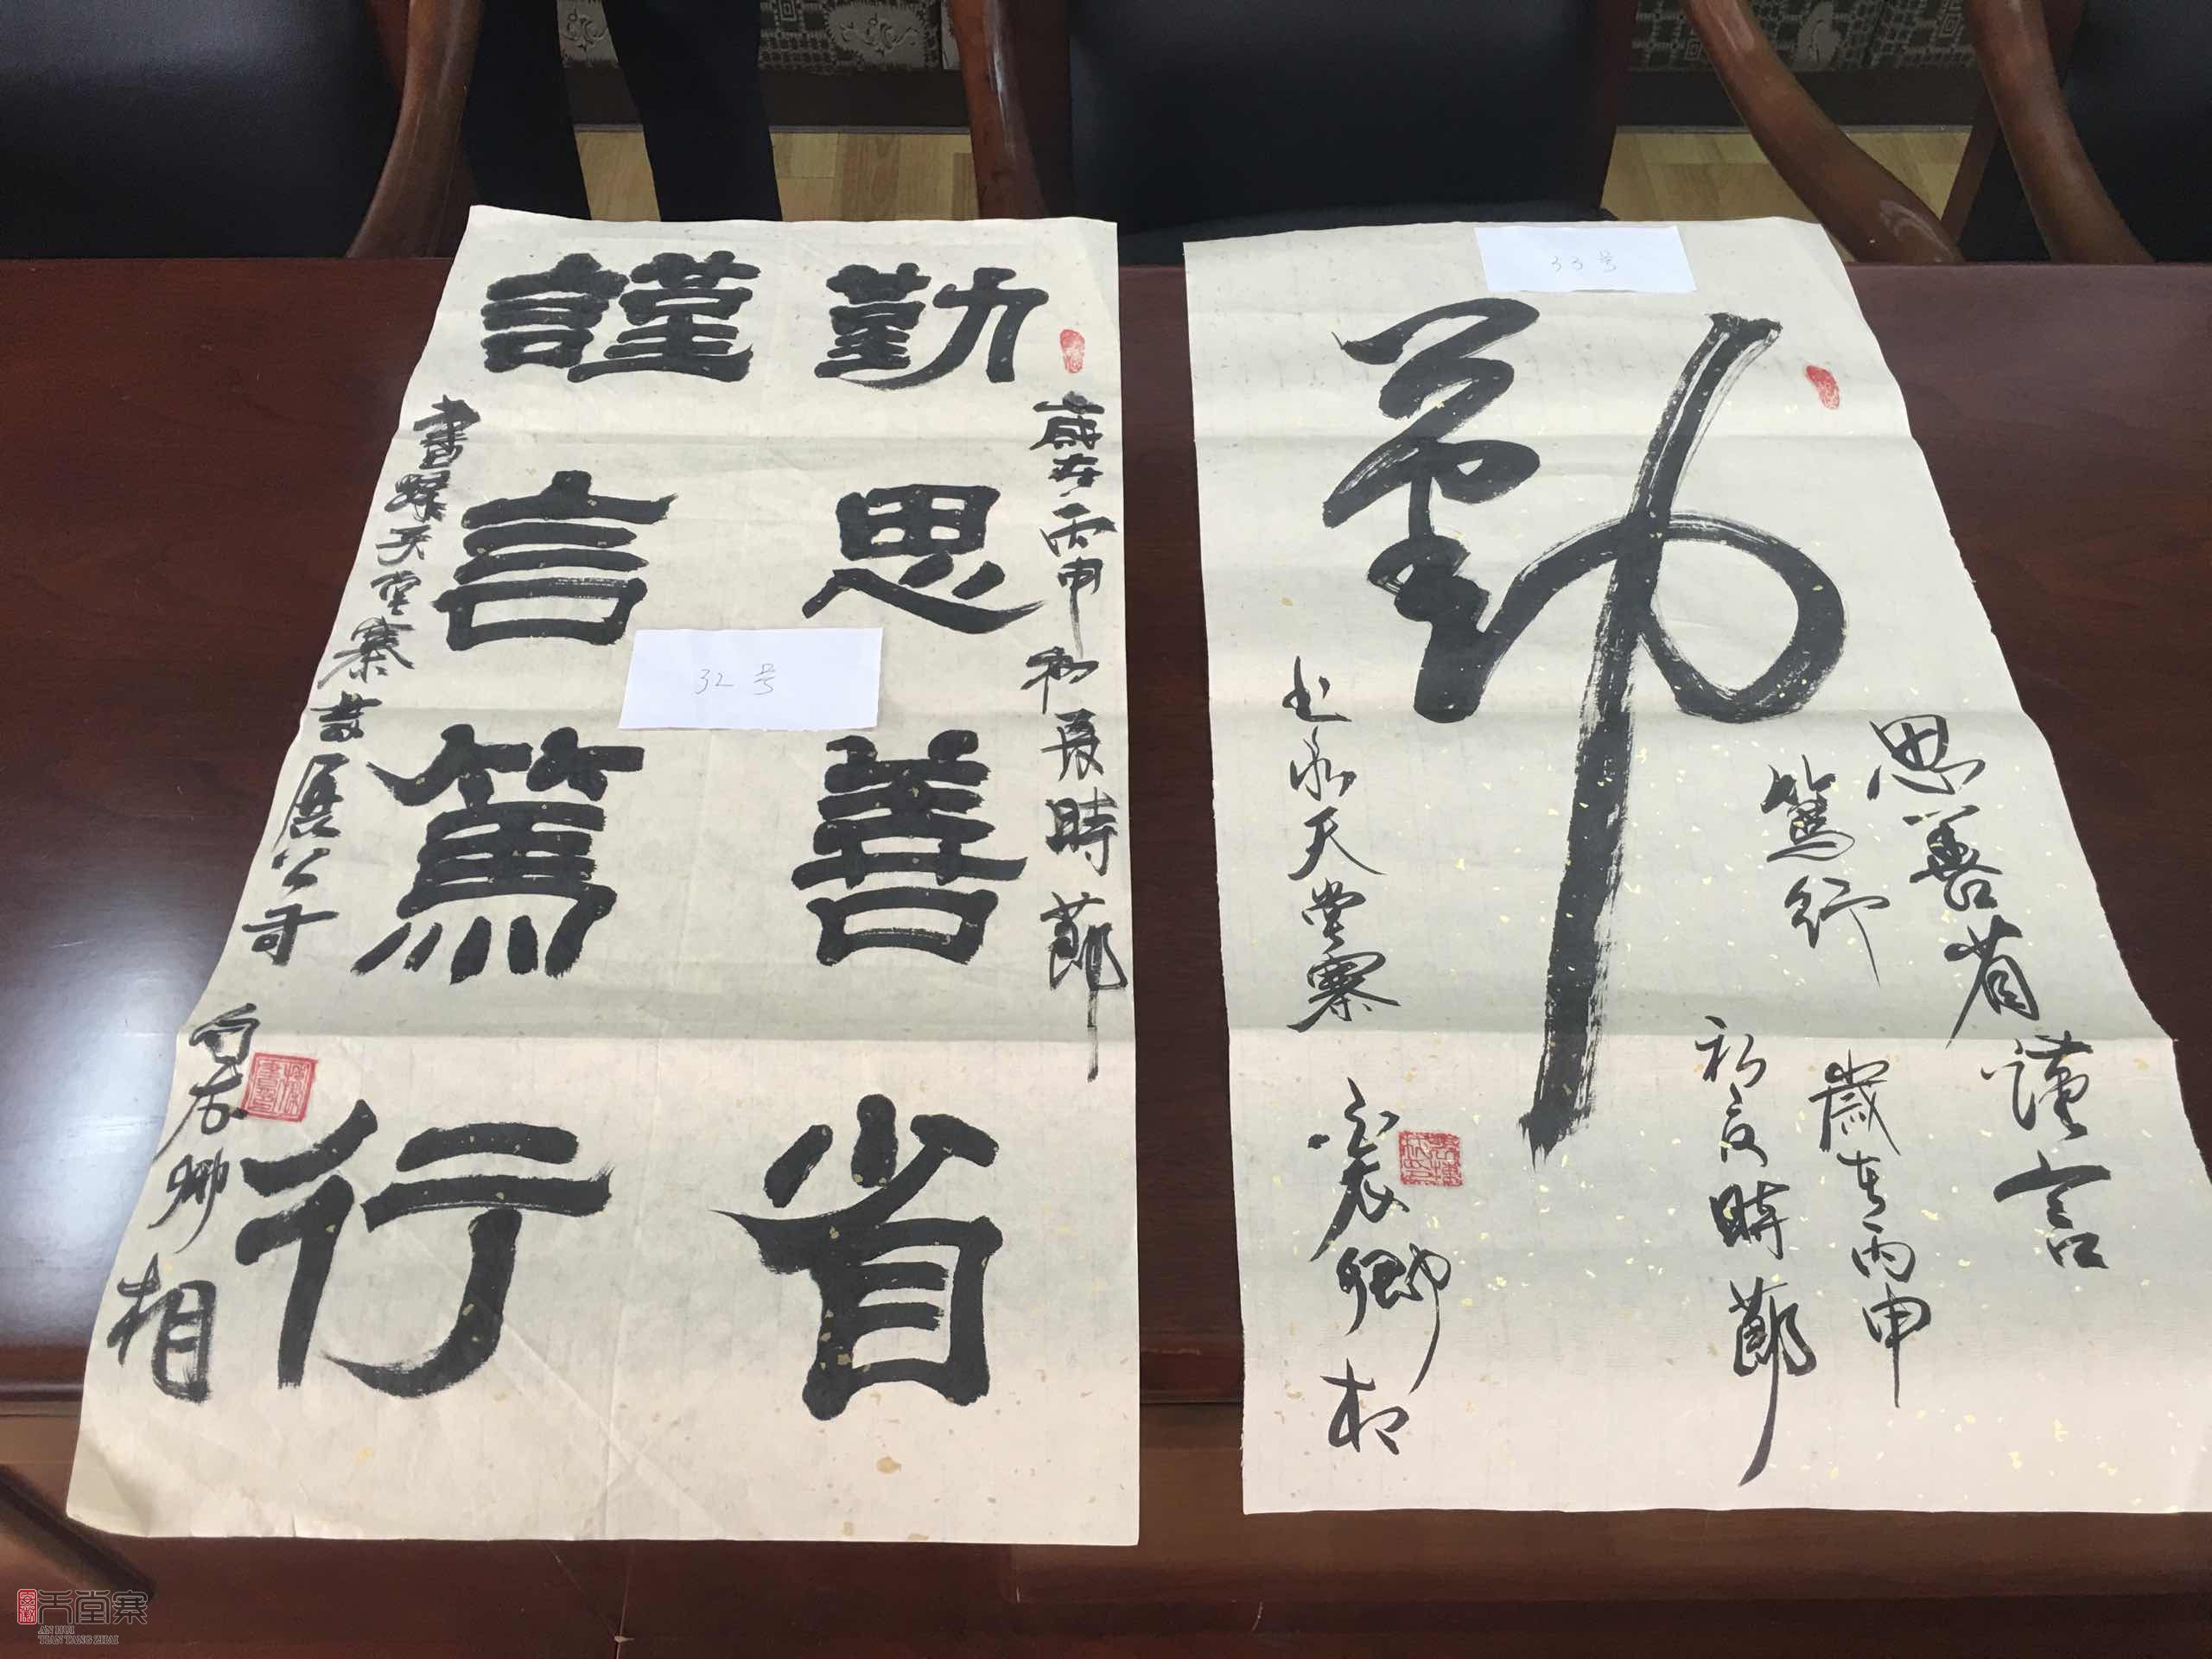 勤思善省
謹言篤行
歲在丙申初夏時節
書於天堂寨
相
32号
33号
勤
思善省謹言
篤行
歲在丙申
初夏時節
天堂寨
卿相
天堂寨
AN HUI
TIAN TANG ZHAI